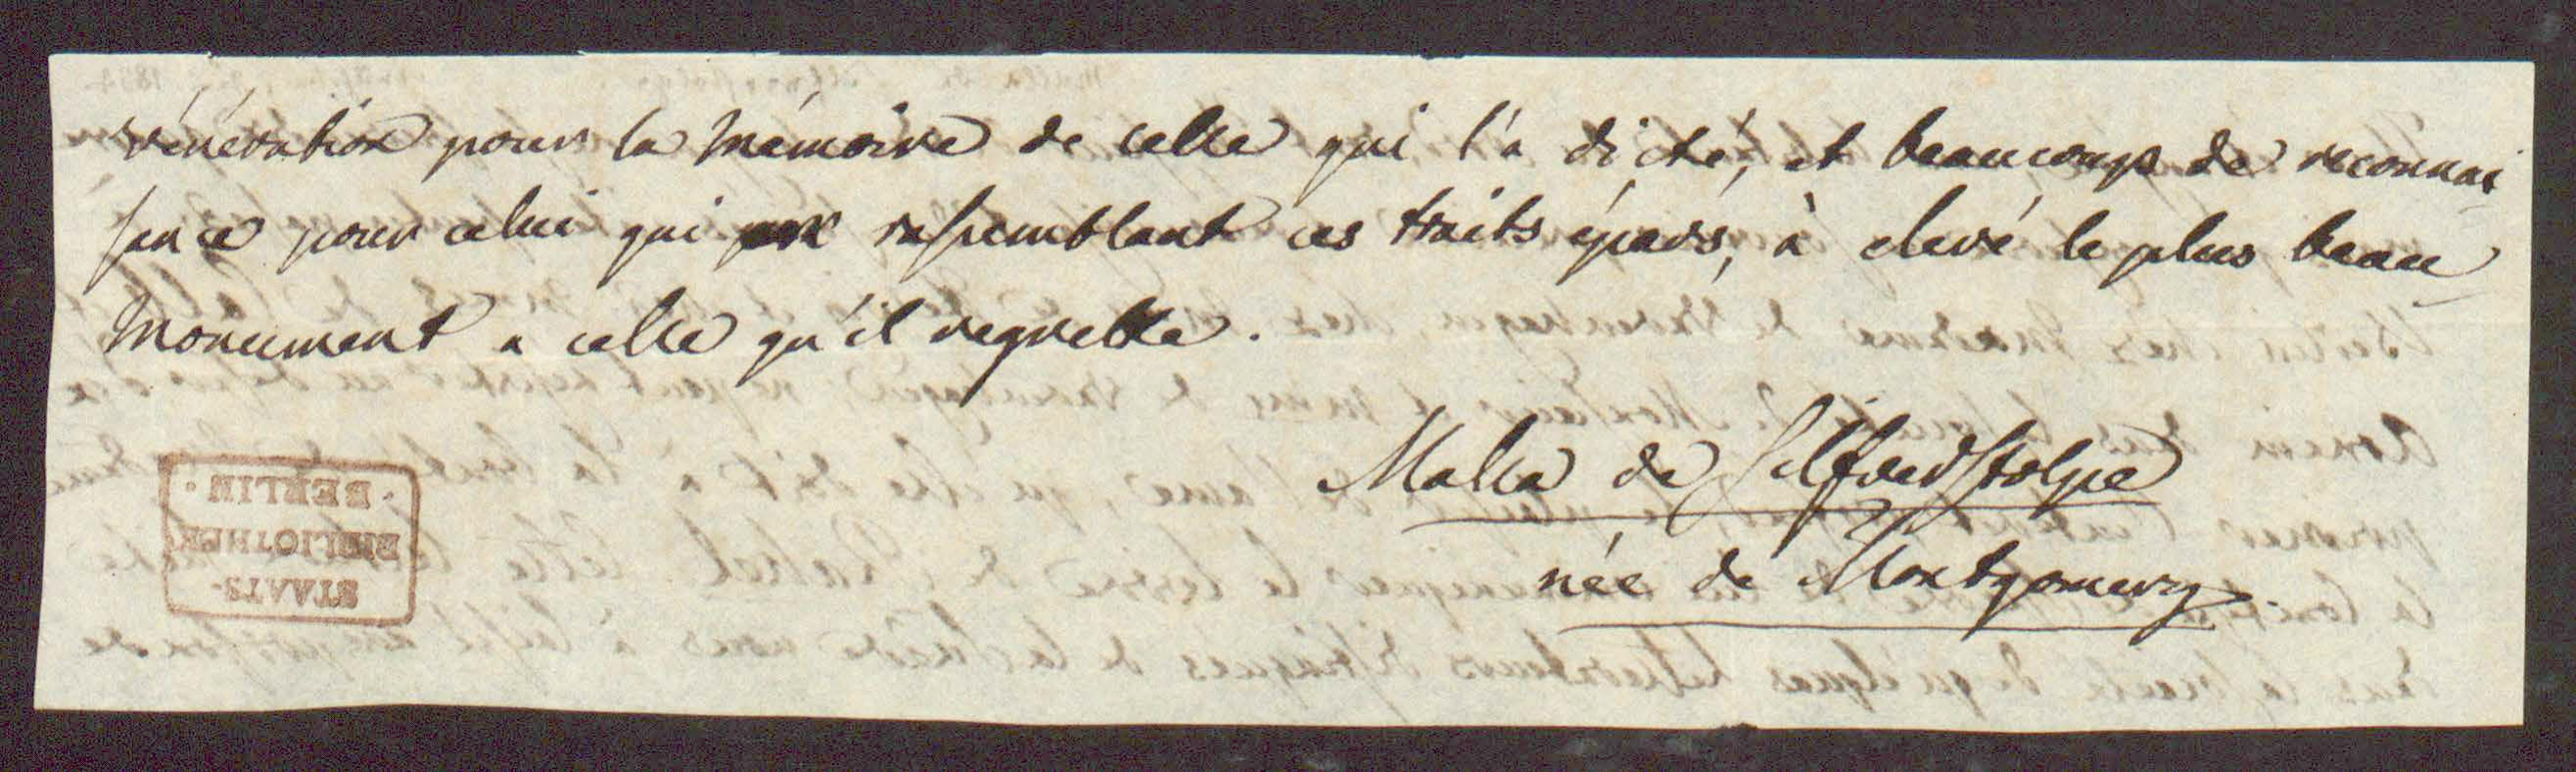 vénération pour la mémoire de celle qui l'a dicté, et beaucoup de reconnai
sance pour celui qui rassemblant ces traits épars, à elevé le plus beau
Monument a celle qu'il regrette.
Malla de Silfverstolpe
née de Montgomery
STAATS-
BIBLIOTHEK
· BERLIN ·